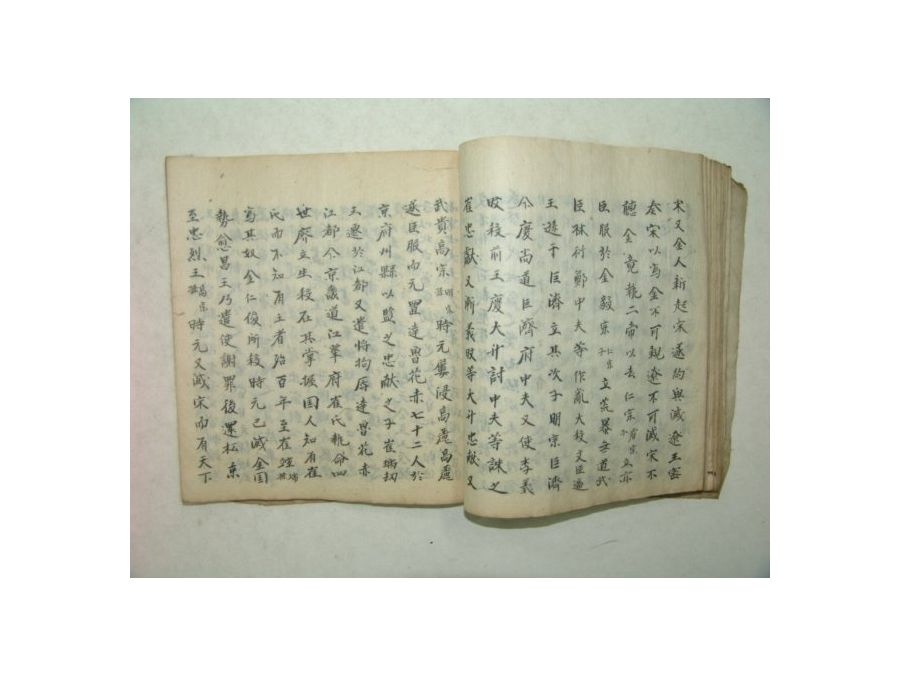 宋又金人新起宋遂約與滅遼王密
奏宋以為金不可親遼不可滅宋不
聽金竟執二帝以去仁宗睿宗子立亦
臣服於金毅宗仁宗子立荒暴無道武
臣林衍鄭中夫等作亂大殺文臣逼
王遊于巨濟立其次子明宗巨濟
今慶尚道巨濟府中夫又使李義
旼殺前王慶大升討中夫等誅之
崔忠献又斬義旼等大升忠献又
武貴高宗明宗孫時元屢侵高麗高麗
遂臣服而元置達魯花赤七十二人於
京府州縣以監之忠献之子崔瑀劫
王遷於江都又遣將拘辱達魯花赤
江都今京畿道江華府崔氏執命四
世廢立生殺在其掌握国人知有崔
氏而不知有主者殆百年至崔竩瑀孫
為其奴金仁俊所殺時元已滅金国
勢愈昌王乃遣使謝罪後還松京
至忠烈王高宗孫時元又滅宋而有天下